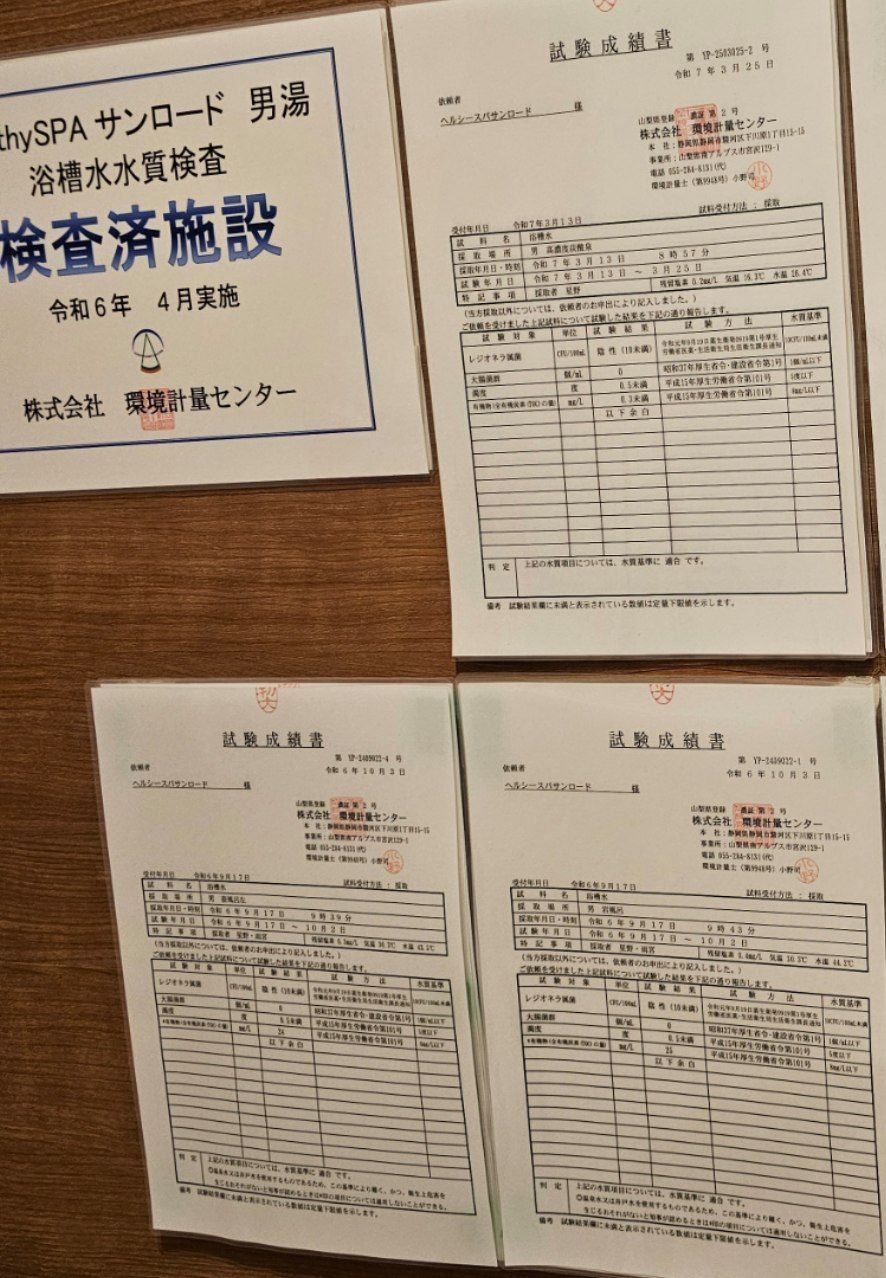 thySPA サンロード 男湯
浴槽水水質検査
検査済施設
令和6年 4月実施
株式会社 環境計量センター
試験成績書
第 YP-2503025-2 号
令和 7 年 3 月 25 日
依頼者
ヘルシースパサンロード 様
山梨県登録 濃証 第 2 号
株式会社 環境計量センター
本 社:静岡県静岡市駿河区下川原1丁目15-15
事業所:山梨県南アルプス市宮沢129-1
電話 055-284-8131(代)
環境計量士(第9948号)小野司
受付年月日 令和7年3月13日 試料受付方法:採取
試料名 浴槽水
採取場所 男 高濃度炭酸泉
採取年月日・時刻 令和 7 年 3 月 13 日 8 時 57 分
試験年月日 令和 7 年 3 月 13 日 ~ 3 月 25 日
特記事項 採取者 星野 残留塩素 0.2mg/L 気温 16.3℃ 水温 36.4℃
(当方採取以外については、依頼者のお申出により記入しました。)
ご依頼を受けました上記試料について試験した結果を下記の通り報告します。
試験対象 単位 試験結果 試験方法 水質基準
レジオネラ属菌 CFU/100mL 陰性(10未満) 令和元年9月19日薬生衛発0919第1号厚生労働省医薬・生活衛生局生活衛生課長通知 10CFU/100mL未満
大腸菌群 個/mL 0 昭和37年厚生省令・建設省令第1号 1個/mL以下
濁度 度 0.5未満 平成15年厚生労働省令第101号 5度以下
有機物(全有機炭素(TOC)の量) mg/L 0.3未満 平成15年厚生労働省令第101号 8mg/L以下
以下余白
判定 上記の水質項目については、水質基準に 適合 です。
備考 試験結果欄に未満と表示されている数値は定量下限値を示します。
試験成績書
第 YP-2409022-4 号
令和 6 年 10 月 3 日
依頼者
ヘルシースパサンロード 様
山梨県登録 濃証 第 2 号
株式会社 環境計量センター
本 社:静岡県静岡市駿河区下川原1丁目15-15
事業所:山梨県南アルプス市宮沢129-1
電話 055-284-8131(代)
環境計量士(第9948号)小野司
受付年月日 令和6年9月17日 試料受付方法:採取
試料名 浴槽水
採取場所 男 壺風呂左
採取年月日・時刻 令和 6 年 9 月 17 日 9 時 39 分
試験年月日 令和 6 年 9 月 17 日 ~ 10 月 2 日
特記事項 採取者 星野・雨宮 残留塩素
(当方採取以外については、依頼者のお申出により記入しました。)
ご依頼を受けました上記試料について試験した結果を下記の通り報告します。
試験対象 単位 試験結果 試験方法 水質基準
レジオネラ属菌 CFU/100mL 陰性(10未満) 令和元年9月19日薬生衛発0919第1号厚生労働省医薬・生活衛生局生活衛生課長通知 10CFU/100mL未満
大腸菌群 個/mL 0 昭和37年厚生省令・建設省令第1号 1個/mL以下
濁度 度 0.5未満 平成15年厚生労働省令第101号 5度以下
*有機物(全有機炭素(TOC)の量) mg/L 24 平成15年厚生労働省令第101号 8mg/L以下
以下余白
判定 上記の水質項目については、水質基準に 適合 です。
◎温泉水又は井戸水を使用するものであるため、この基準により難く、かつ、衛生上危害を
生じるおそれがないと知事が認めるときは*印の項目については適用しないことができる。
備考 試験結果欄に未満と表示されている数値は定量下限値を示します。
試験成績書
第 YP-2409022-1 号
令和 6 年 10 月 3 日
依頼者
ヘルシースパサンロード 様
山梨県登録 濃証 第 2 号
株式会社 環境計量センター
本 社:静岡県静岡市駿河区下川原1丁目15-15
事業所:山梨県南アルプス市宮沢129-1
電話 055-284-8131(代)
環境計量士(第9948号)小野司
受付年月日 令和6年9月17日 試料受付方法:採取
試料名 浴槽水
採取場所 男 岩風呂
採取年月日・時刻 令和 6 年 9 月 17 日 9 時 43 分
試験年月日 令和 6 年 9 月 17 日 ~ 10 月 2 日
特記事項 採取者 星野・雨宮 残留塩素 気温 30.3℃ 水温 44.3℃
(当方採取以外については、依頼者のお申出により記入しました。)
ご依頼を受けました上記試料について試験した結果を下記の通り報告します。
試験対象 単位 試験結果 試験方法 水質基準
レジオネラ属菌 CFU/100mL 陰性(10未満) 令和元年9月19日薬生衛発0919第1号厚生労働省医薬・生活衛生局生活衛生課長通知 10CFU/100mL未満
大腸菌群 個/mL 0 昭和37年厚生省令・建設省令第1号 1個/mL以下
濁度 度 0.5未満 平成15年厚生労働省令第101号 5度以下
*有機物(全有機炭素(TOC)の量) mg/L 25 平成15年厚生労働省令第101号 8mg/L以下
以下余白
判定 上記の水質項目については、水質基準に 適合 です。
◎温泉水又は井戸水を使用するものであるため、この基準により難く、かつ、衛生上危害を
生じるおそれがないと知事が認めるときは*印の項目については適用しないことができる。
備考 試験結果欄に未満と表示されている数値は定量下限値を示します。